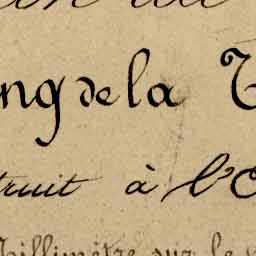 ng de la
truit à l'
Millimètre sur le